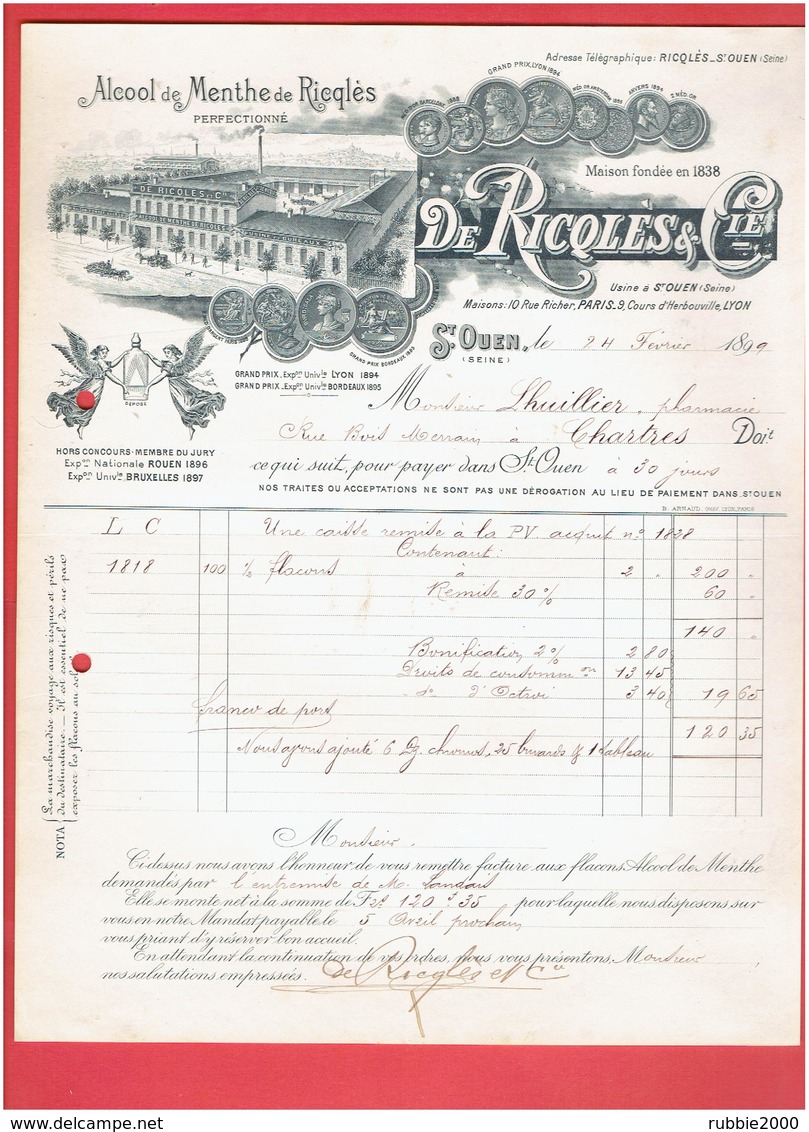 Adresse Télégraphique: RICQLÈS-ST OUEN (Seine)
Alcool de Menthe de Ricqlès
PERFECTIONNÉ
GRAND PRIX, LYON 1894
ANVERS 1894
2 MÉD. OR
Maison fondée en 1838
DE RICQLES & CIE
DE RICQLES & CIE
ALCOOL DE MENTHE DE RICQLES
USINE & BUREAUX
Usine à ST OUEN (Seine)
Maisons: 10 Rue Richer, PARIS_9, Cours d'Herbouville, LYON
GRAND PRIX BORDEAUX 1895
ST OUEN, le 24 Février 1899
(SEINE)
GRAND PRIX_Expon Univle LYON 1894
GRAND PRIX_Expon Univle BORDEAUX 1895
DÉPOSÉ
Monsieur Lhuillier, pharmacie
Rue Bois Merrain à Chartres Doit
HORS CONCOURS-MEMBRE DU JURY
Expon Nationale ROUEN 1896
Expon Univle BRUXELLES 1897
ce qui suit, pour payer dans St Ouen à 30 jours
NOS TRAITES OU ACCEPTATIONS NE SONT PAS UNE DÉROGATION AU LIEU DE PAIEMENT DANS ST OUEN
B. ARNAUD, LYON, PARIS
L C Une caisse remise à la P.V. acquit no 1828
Contenant:
1818 100 ½ flacons à 2 " 200 "
Remise 30 % 60 "
140 "
Bonification 2 % 2 80
Droits de consommon 13 45
do d'Octroi 3 40 19 65
franco de port 120 35
Nous avons ajouté 6 Dz. chromos, 25 buvards & 1 tableau
NOTA
La marchandise voyage aux risques et périls
du destinataire.— Il est essentiel de ne pas
exposer les flacons au soleil
Monsieur,
Ci-dessus nous avons l'honneur de vous remettre facture aux flacons Alcool de Menthe
demandés par l'entremise de M.
Elle se monte net à la somme de Fcs 120 f 35 pour laquelle nous disposons sur
vous en notre Mandat payable le 5 Avril prochain
vous priant d'y réserver bon accueil.
En attendant la continuation de vos ordres, nous vous présentons, Monsieur
nos salutations empressées.
de Ricqlès & Cie
rubbie2000